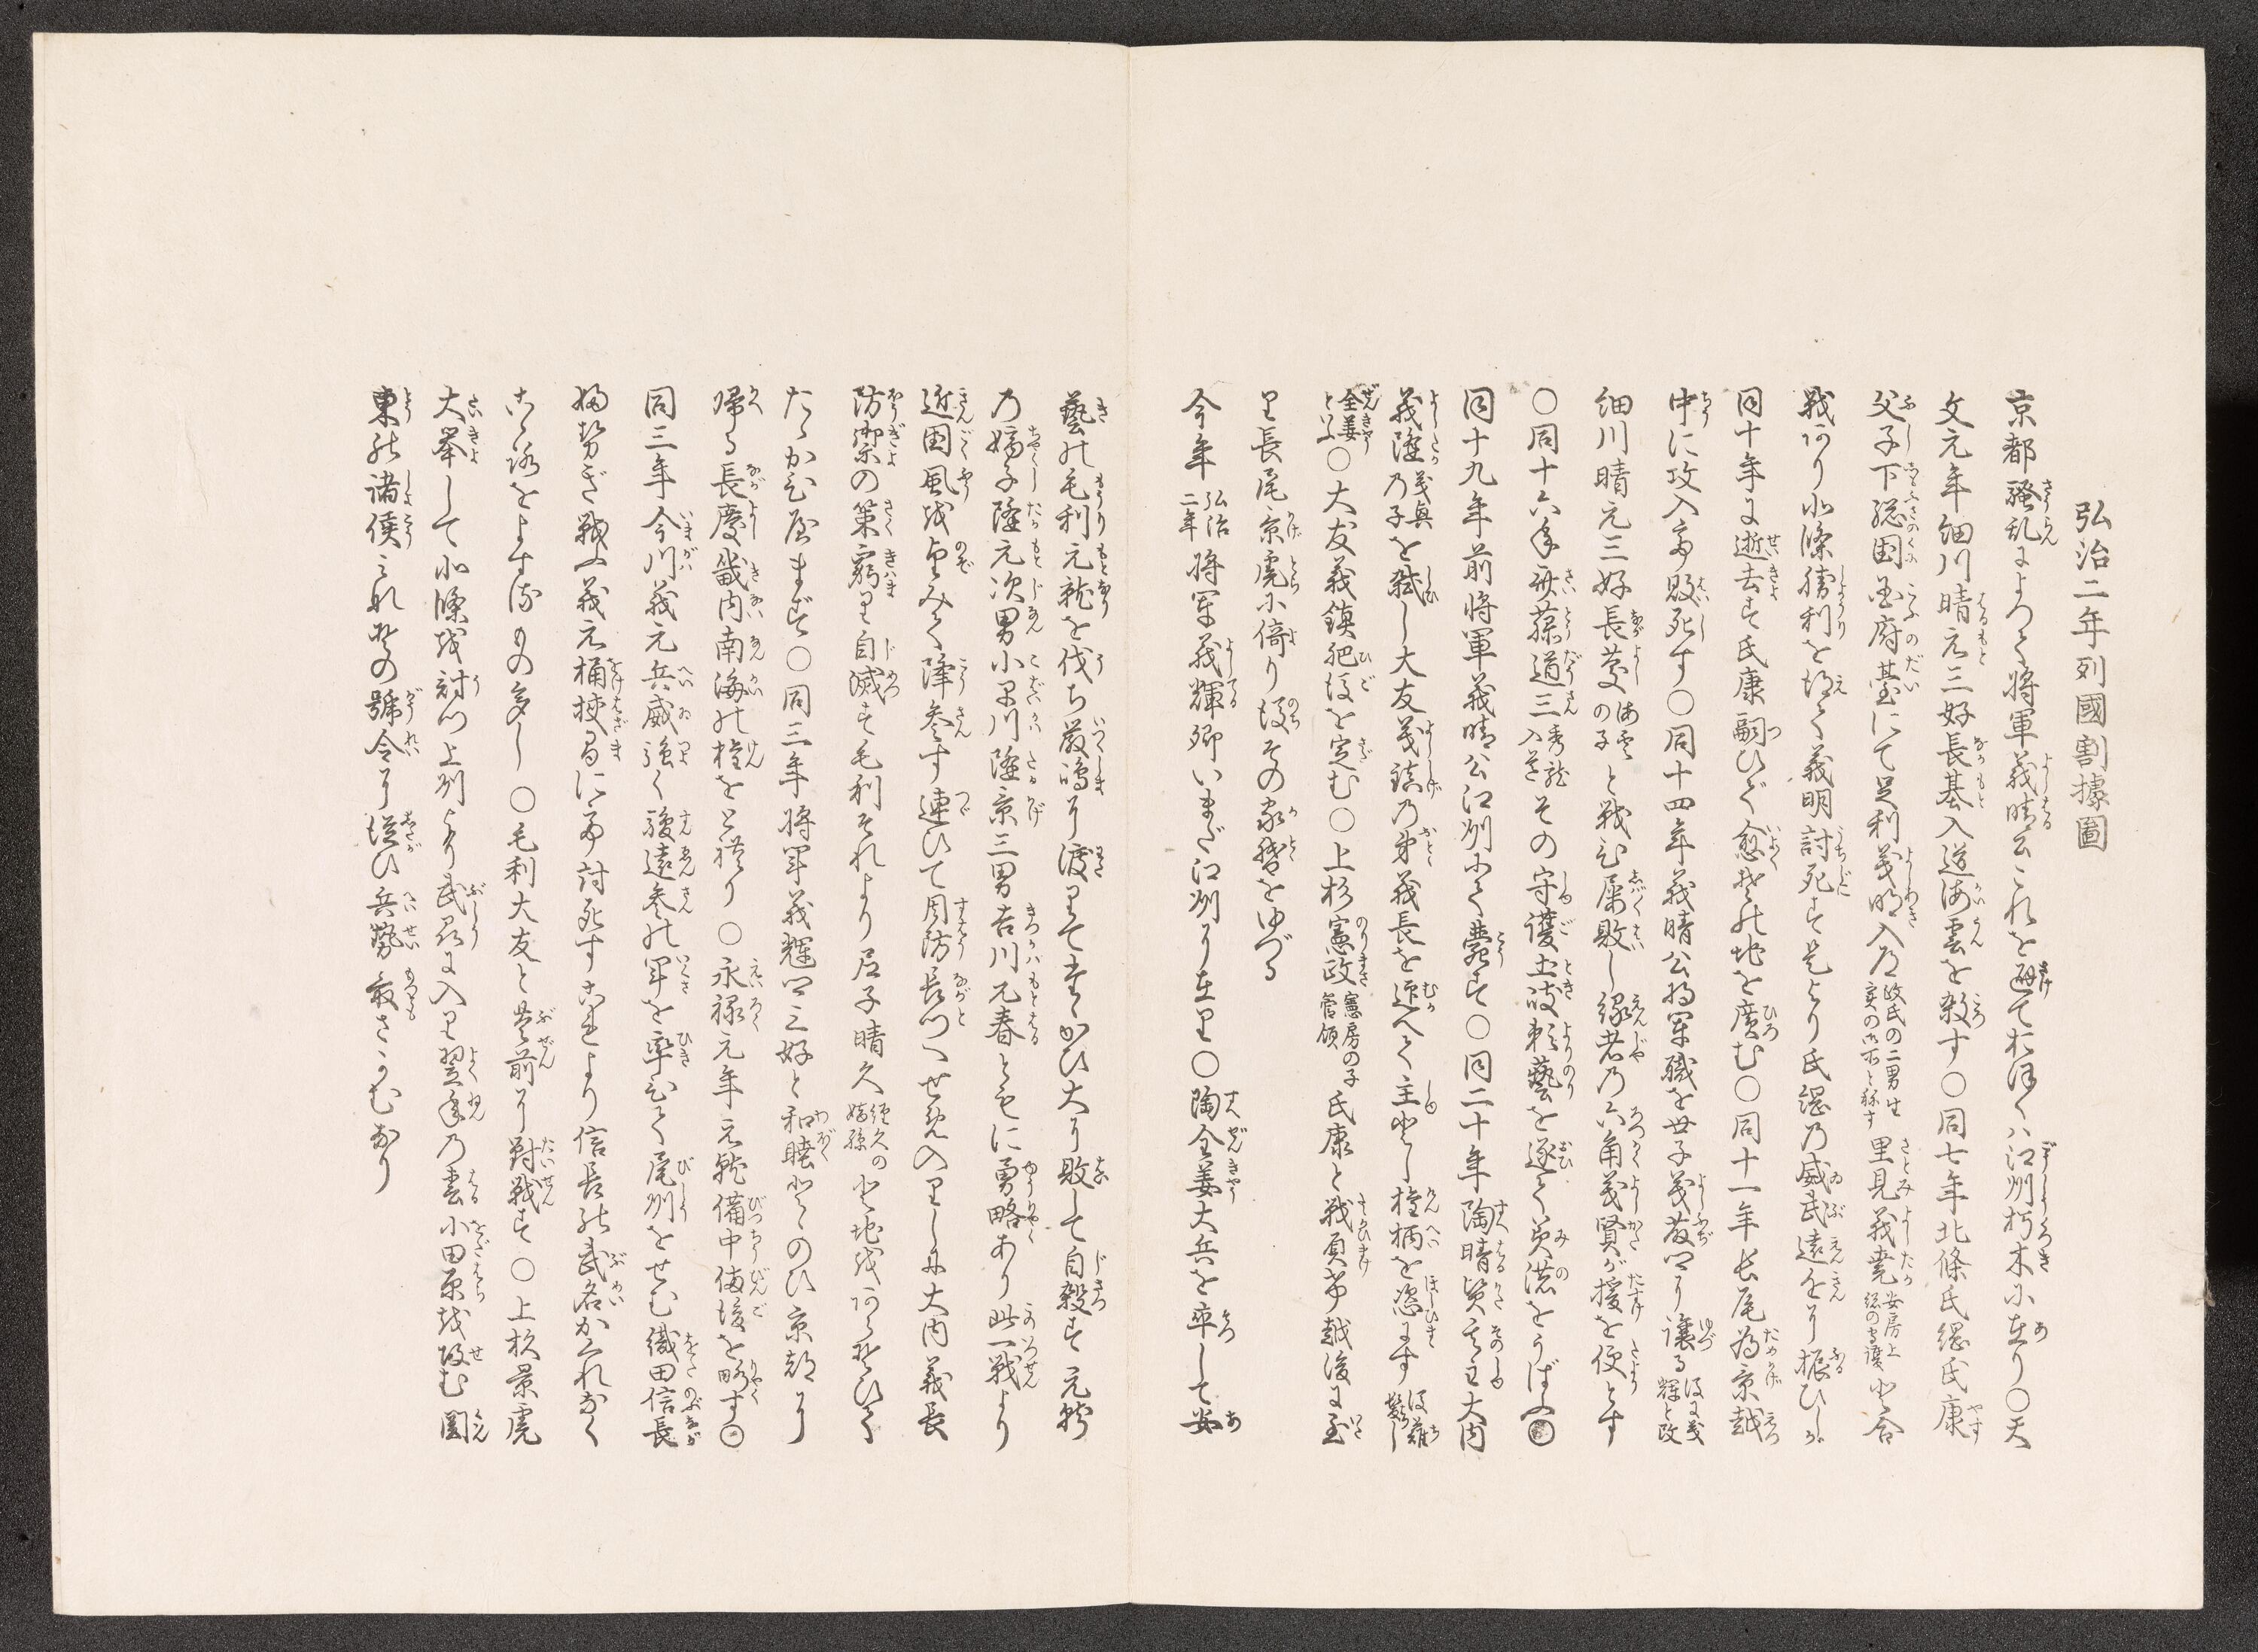 弘治二年列國割據圖
京都騒乱によつて将軍義晴公これを避ておほくハ江州朽木に在り〇天
文元年細川晴元三好長基入道海雲を殺す〇同七年北條氏綱氏康
父子下総国国府臺にて足利義明入道政氏の二男生実の御所と称す里見義堯安房上総の守護と合
戦あり北條勝利を得て義明討死す是より氏綱乃威武遠近に振ひしが
同十年に逝去す氏康嗣ひで愈其の地を廣む〇同十一年長尾為景越
中に攻入て敗死す〇同十四年義晴公将軍職を世子義藤公に譲る後に義輝と改
細川晴元三好長慶海雲の子と戦ひ屡敗し縁者乃六角義賢が援を便とす
〇同十六年斎藤道三秀龍入道その守護土岐頼藝を逐て美濃をうばふ〇
同十九年前将軍義晴公江州にて薨ず〇同二十年陶晴賢其主大内
義隆義興乃子を弑し大友義鎮乃弟義長を迎へて主とし権柄を恣にす後薙髪し
全姜といふ〇大友義鎮肥後を定む〇上杉憲政憲房の子管領氏康と戦負て越後に至
り長尾景虎に倚り後その家督をゆづる
今年弘治二年将軍義輝卿いまだ江州に在り〇陶全姜大兵を率して安
藝の毛利元就を伐ち厳嶋に渡りてたゝかひ大に敗して自殺す元就
乃嫡子隆元次男小早川隆景三男吉川元春ともに勇略あり此一戦より
近国風を望みて降参す連ひて周防長門へせめ入りしに大内義長
防禦の策窮り自滅す毛利それより尼子晴久経久の嫡孫と地をあらそひて
たゝかひやまず〇同三年将軍義輝公三好と和睦とゝのひ京都に
帰る長慶畿内南海の権をとれり〇永禄元年元就備中備後を略す〇
同三年今川義元兵威強く駿遠参の軍を率ひて尾州をせむ織田信長
婦勢ぎ戦ふ義元桶挟間にて討死すこれより信長の武名かくれなく
こゝろをよする もの多し〇毛利大友と豊前に對戦す〇上杉景虎
大挙して北條を討つ上州より武州に入り翌年乃春小田原を攻む関
東の諸侯これが為の號令に従ひ兵勢最さかむなり